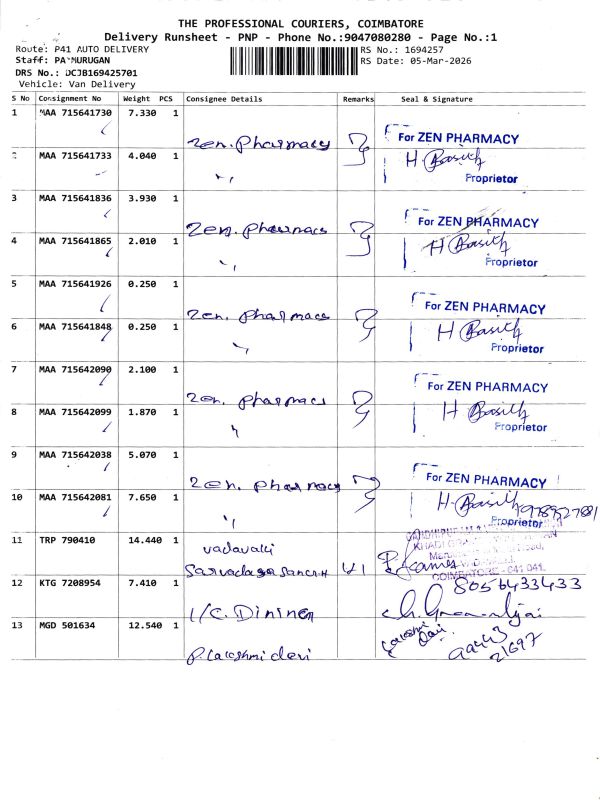 THE PROFESSIONAL COURIERS, COIMBATORE
Delivery Runsheet - PNP - Phone No.:9047080280 - Page No.:1
Route: P41 AUTO DELIVERY
RS No.: 1694257
Staff: PA MURUGAN
RS Date: 05-Mar-2026
DRS No.: DCJB169425701
Vehicle: Van Delivery
S No Consignment No Weight PCS Consignee Details Remarks Seal & Signature
1 MAA 715641730 7.330 1
Zen. Pharmacy
For ZEN PHARMACY
2 MAA 715641733 4.040 1
H. Basith
Proprietor
3 MAA 715641836 3.930 1
Zen. Pharmacy
For ZEN PHARMACY
4 MAA 715641865 2.010 1
H Basith
Proprietor
5 MAA 715641926 0.250 1
Zen. Pharmacy
For ZEN PHARMACY
6 MAA 715641848 0.250 1
H Basith
Proprietor
7 MAA 715642090 2.100 1
Zen. Pharmacy
For ZEN PHARMACY
8 MAA 715642099 1.870 1
H Basith
Proprietor
9 MAA 715642038 5.070 1
Zen. Pharmacy
For ZEN PHARMACY
10 MAA 715642081 7.650 1
H. Basith
Proprietor
11 TRP 790410 14.440 1
vadavalli
COIMBATORE - 641 041.
12 KTG 7208954 7.410 1
8056433433
I/C. Dininen
13 MGD 501634 12.540 1
P. Lakshmi devi
Lakshmi
devi